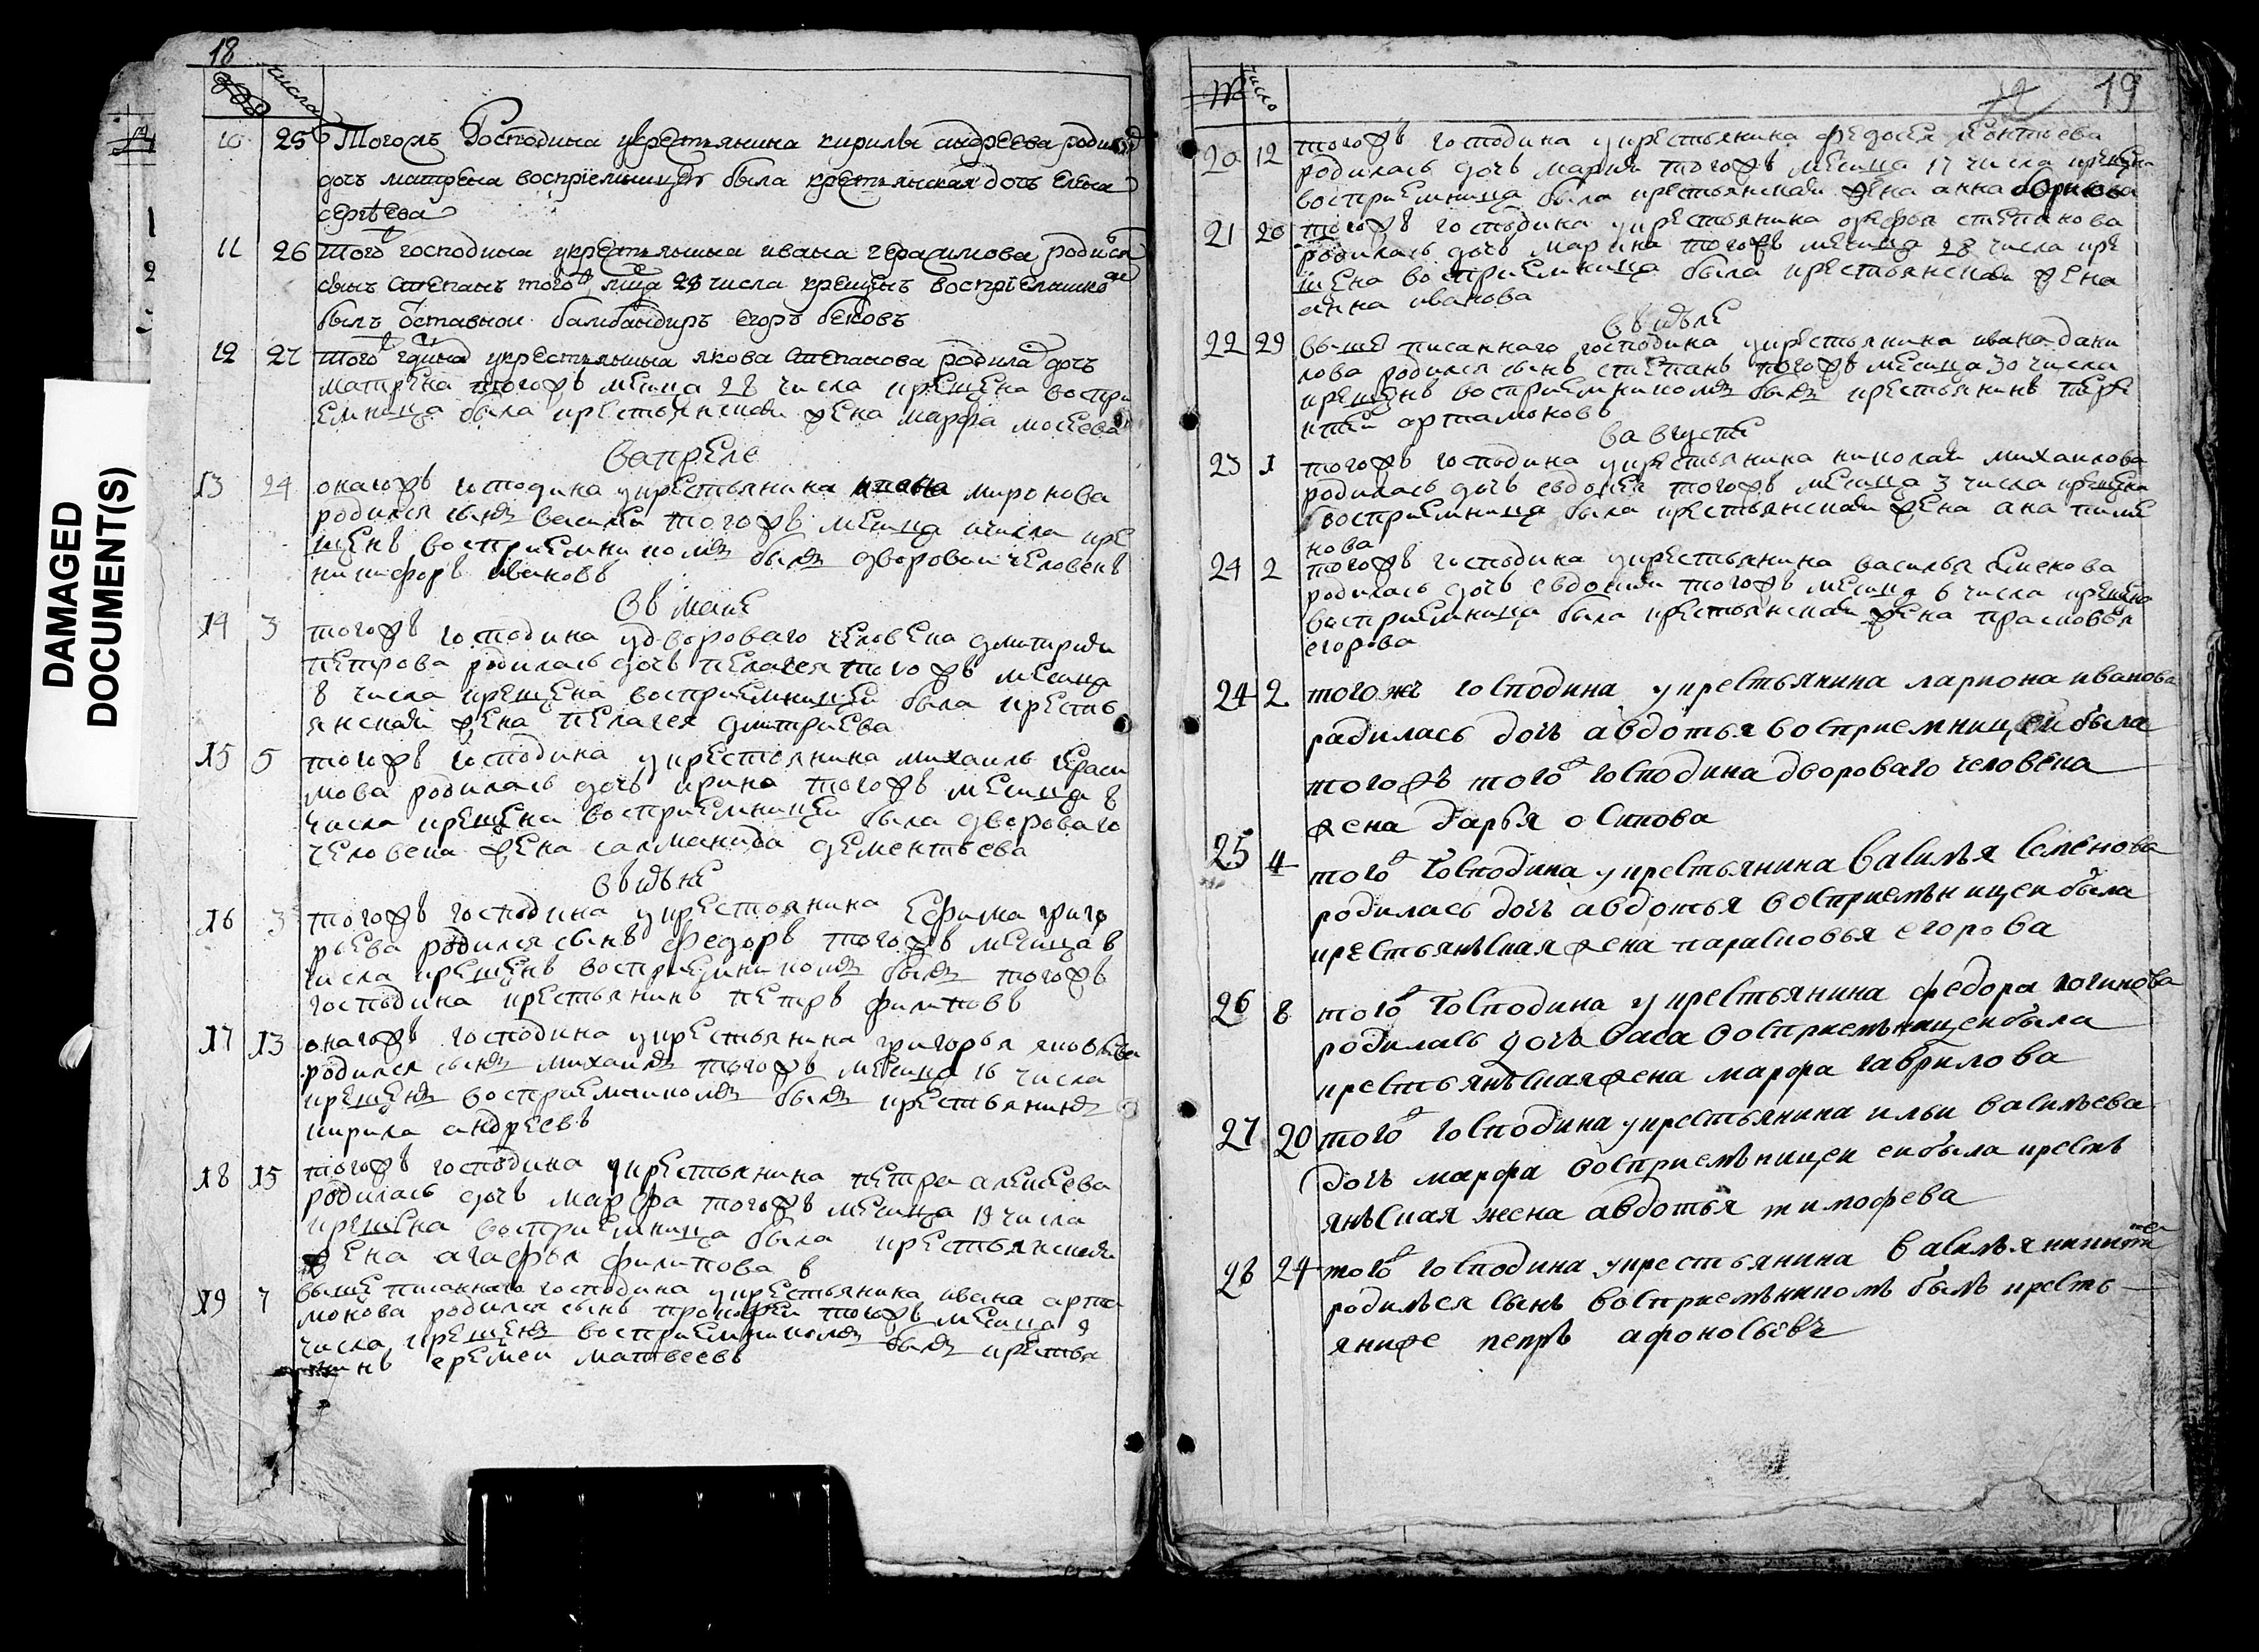 DAMAGED
DOCUMENT(S)
18
числа
10 25 Тогожъ Господина укрестьянина кирилы андреева родилас
дочь матрена восприемницеи была крестьянская дочь елена
сергѣева
11 26 того господина укрестьянина ивана герасимова родился
сынъ степанъ того мца 28 числа крещенъ восприемникомъ
былъ оставнои егоръ бековъ
12 27 того гдина укрестьянина якова степанова родила дочь
матрена тогожъ месица 28 числа крещена воспри
емница была крестьянская жена марфа мосеева
вапреле
13 24 онагожъ господина укрестьянина миронова
родился сынъ василеи тогожъ месица числа кре
щенъ восприемникомъ былъ дворовои человекъ
никифоръ ивановъ
въ маие
14 3 тогожъ господина удвороваго человека дмитрия
петрова родилась дочь пелагея тогожъ месица
8 числа крещена восприемницеи была кресть
янская жена пелагея дмитриева
15 5 тогожъ господина укрестьянина михаила гераси
мова родилась дочь ирина тогожъ месица 8
числа крещена восприемницеи была двороваго
человека жена саломанида дементьева
въ июне
16 3 тогожъ господина укрестьянина ефима григо
рьева родился сынъ федоръ тогожъ месица 8
числа крещенъ восприемникомъ былъ тогожъ
господина крестьянинъ петръ филиповъ
17 13 онагожъ господина укрестьянина григорья яковлева
родился сынъ михаилъ тогожъ месица 16 числа
крещенъ восприемникомъ былъ крестьянинъ
кирила андреевъ
18 15 тогожъ господина укрестьянина петра алексеева
родилась дочь марфа тогожъ месица 19 числа
крещена восприемница была крестьянская
жена агафья филипова
19 7 выше писаннаго господина укрестьянина ивана арта
монова родился сынъ прокофеи тогожъ месица 9
числа крещенъ восприемникомъ былъ крестья
нинъ еремеи матвеевъ
№ число 19
20 12 тогожъ господина укрестьянина федосея леонтьева
родилась дочь мария тогожъ месица 17 числа крещена
восприемница была крестьянская жена анна
21 20 тогожъ господина укрестьянина степанова
родилась дочь марина тогожъ месица 28 числа кре
щена восприемница была крестьянская жена
анна иванова
въ июле
22 29 выше писаннаго господина укрестьянина ивана дани
лова родился сынъ степанъ тогожъ месица 30 числа
крещенъ восприемникомъ былъ крестьянинъ
артамоновъ
вавгусте
23 1 тогожъ господина укрестьянина николая михаилова
родилась дочь евдокея тогожъ месица 3 числа крещена
восприемница была крестьянская жена ана пиме
нова
24 2 тогожъ господина укрестьянина василья семенова
родилась дочь евдокия тогожъ месица 6 числа крещена
восприемница была крестьянская жена прасковья
егорова
24 2 тогожъ господина укрестьянина лариона иванова
радилась дочь авдотья восприемницеи была
тогожъ того господина двороваго человека
жена дарья осипова
25 4 того господина укрестьянина василья семенова
родилась дочь авдотья восприемъницеи была
крестьянъская жена парасковья егорова
26 8 того господина укрестьянина федора логинова
родилась дочь васа восприемъницеи была
крестьянъская жена марфа гаврилова
27 20 того господина укрестьянина ильи васильева
дочь марфа восприемъницеи еи была кресть
янъская жена авдотья тимофева
28 24 того господина укрестьянина василья
родилься сынъ восприемъникомъ былъ кресть
яниже петръ афоносьевъ